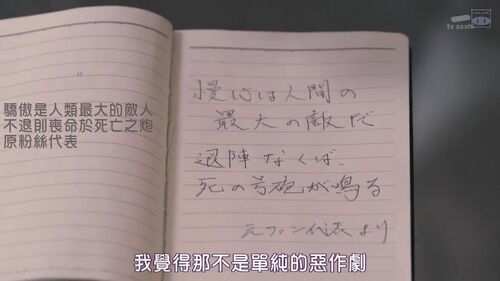 tv asahi
驕傲是人類最大的敵人
不退則喪命於死亡之炮
原粉絲代表
慢心は人間の
最大の敵だ
退陣なくば、
死の号砲が鳴る
元ファン代表より
我覺得那不是單純的惡作劇